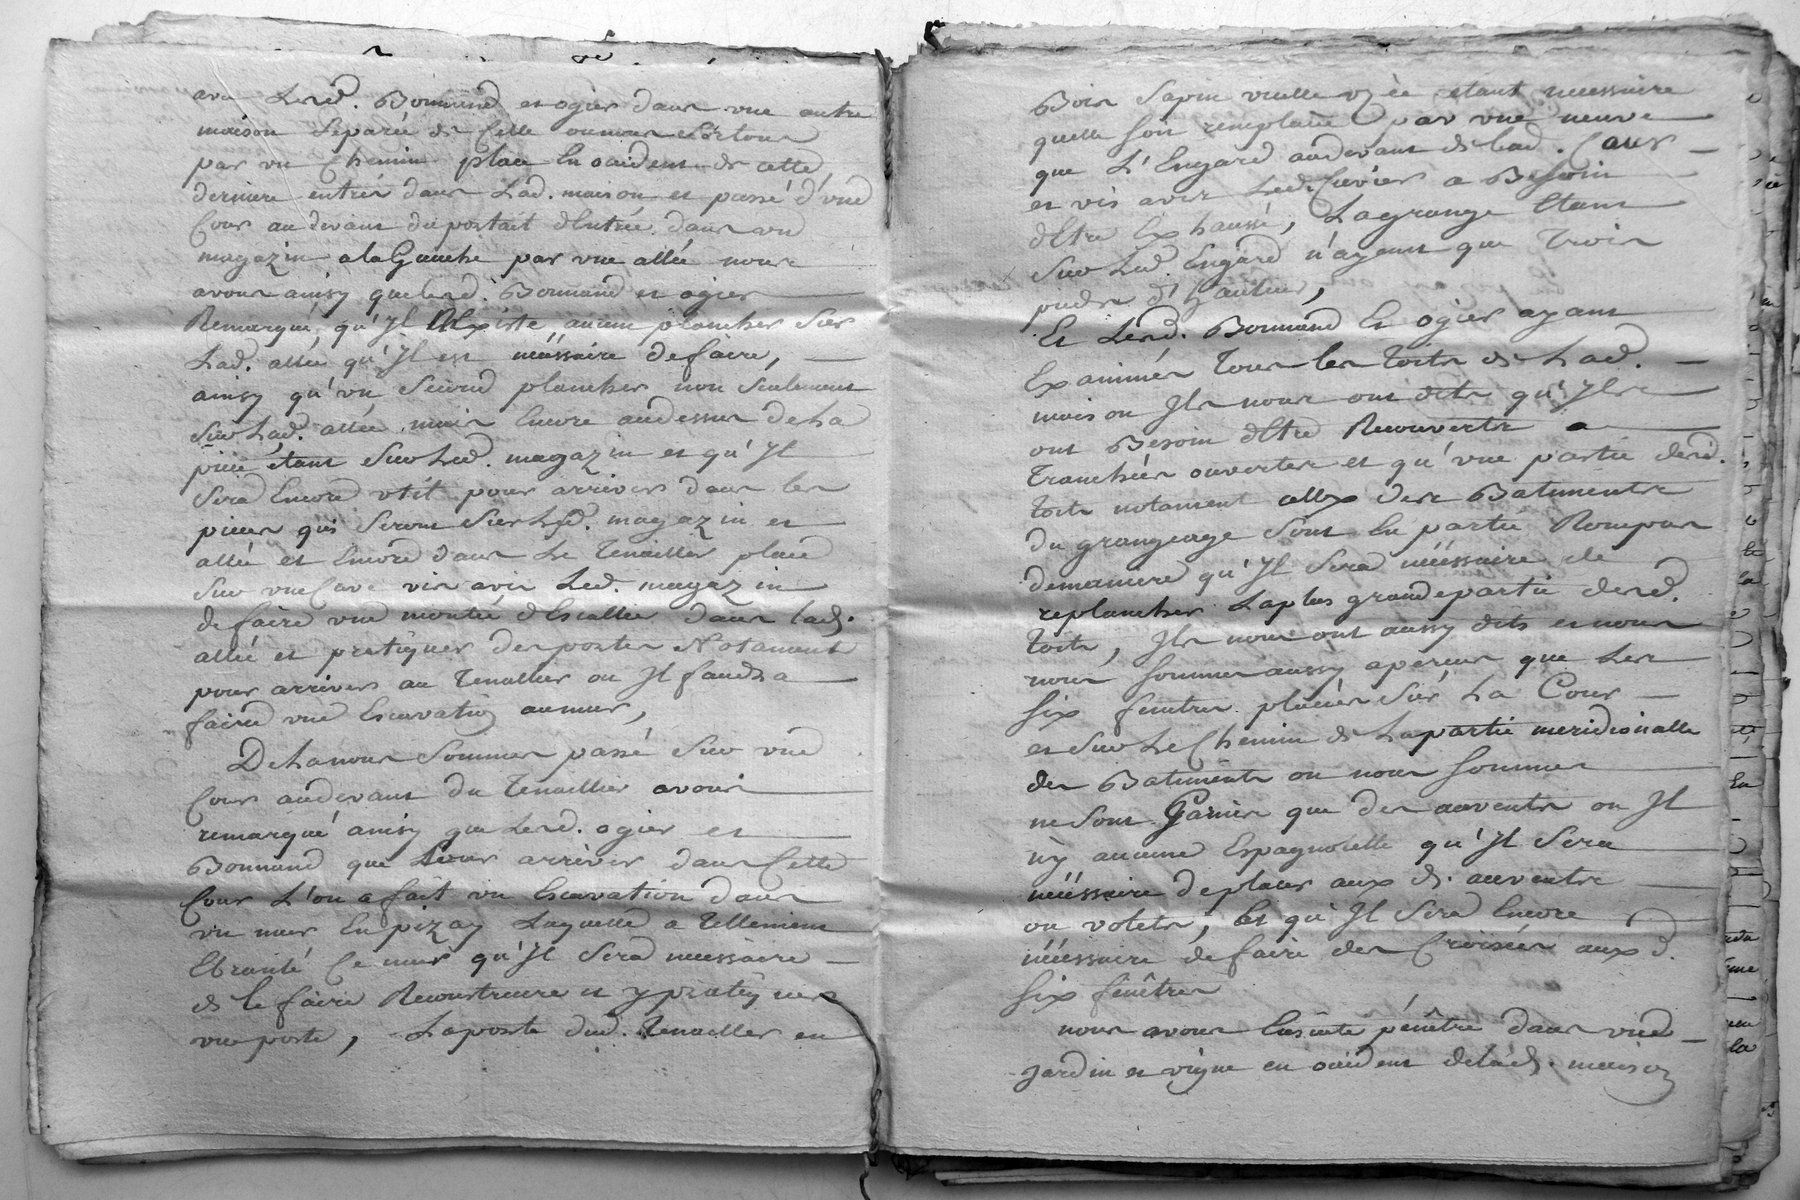 avec Lesd. Bonnand et ogier dans une autre
maison Separée de Celle ou nous Sortons
par un Chemin place En occident de cette
derniere entrés dans Lad. maison et passé d'une
Cour au devant du portait dEntrée dans un
magazin a la Gauche par une allée nous
avons ainsy que lesd. Bonnand et ogier
Remarqué qu'Il Nexiste aucun plancher Sur
Lad. allée qu'Il est néessaire de faire,
ainsy qu'un Second plancher non Seulement
Sur Lad. allée mais Encore audessus de La
piece étant Sur Led. magazin et qu'Il
Sera Encore utit pour arriver dans les
pieces qui Seront Sur Led. magazin et
allée et Encore dans Le Tenaillier placé
Sur une Cave vis avis Led. magazin
de faire une montée dEscallier dans lad.
allée et pratiquer des portes Notament
pour arriver au Tenallier ou Il faudra
faire une Escavation au mur,
De La nous Sommes passé Sur une
Cour audevant du Tenaillier avons
remarqué ainsy que Lesd. ogier et
Bonnand que Pour arriver dans Cette
Cour L'on a fait un Escavation dans
un mur En pizay Laquelle a Tellement
Ebranlé Ce mur qu'Il Sera necessaire
de le faire Reconstruire et y pratiquer
une porte, La porte dud. Tenaillier en
Bois Sapin vieille uzée etant necessaire
quelle Soit remplacée par une neuve
que L'Engard audevant de lad. Cave
et vis avis Led. Cuvier a Besoin
dEtre Exhaussé, La grange Etant
Sur Led. Engard n'ayant que Trois
pieds d'Hauteur,
Et Lesd. Bonnand Et ogier ayant
Examinés Tous les Toits de Lad.
maison Ils nous ont dits qu'Ils
ont Besoin dEtre Recouverts a
Tranchées ouvertes et qu'une partie desd.
Toits notament cellx des Batiments
du grangeage Sont En partie Rompus
demaniere qu'Il Sera néessaire de
replancher La plus grande partie desd.
Toits, Ils nous ont aussy dits et nous
nous Sommes aussy aperçus que Les
Six fenêtres placées Sur La Cour
et Sur Le Chemin de La partie meridionalle
des Batiments ou nous Sommes
ne Sont Garnies que des auvents ou Il
n'y aucune Espagnolette qu'Il Sera
néessaire de placer aux d. auvents
ou volets, Et qu'Il Sera Encore
néessaire de faire des Croisées aux d.
Six fenêtres
nous avons Ensuite pénêtré dans une
Jardin et vigne en occident de lad. maison